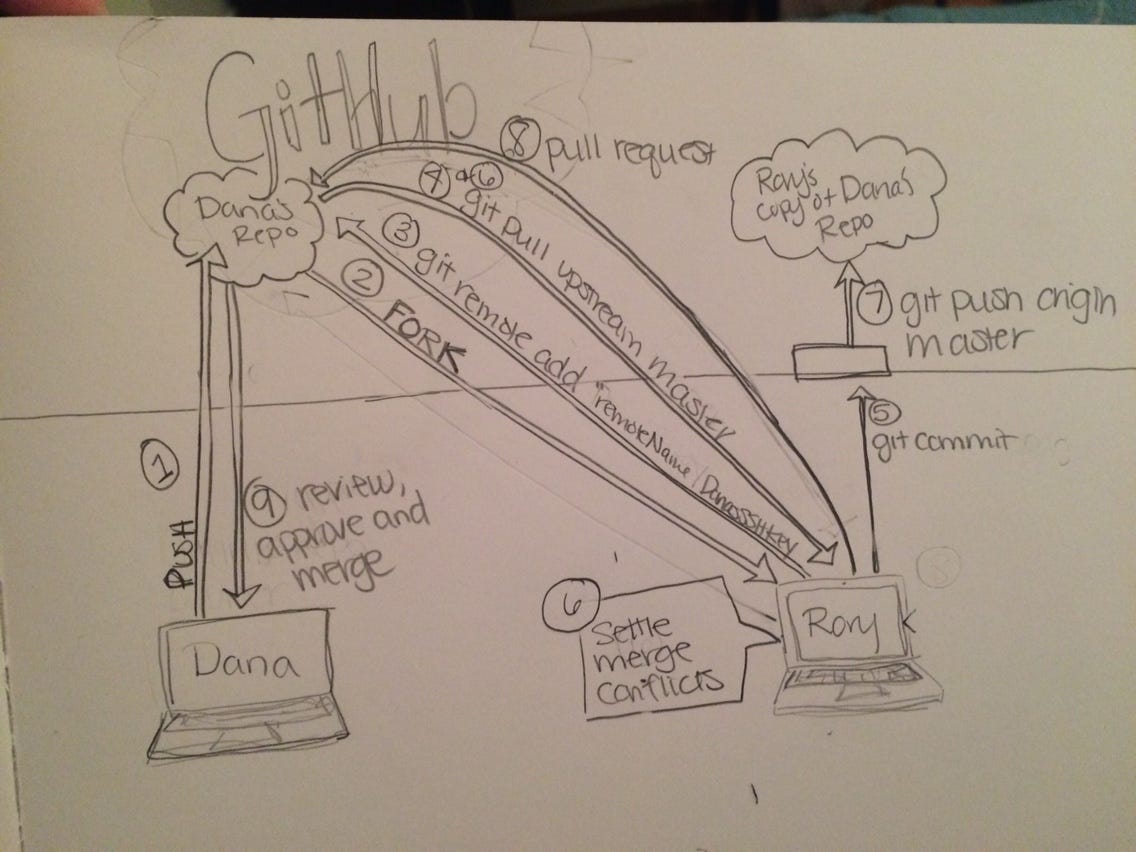 GitHub
⑧ pull request
Dana's
Repo
Rory's
copy of Dana's
Repo
④ + ⑥
git pull upstream master
③ git remote add "remoteName/DanasSSHKey
② FORK
⑦ git push origin
master
⑤
git commit
①
PUSH
⑨ review,
approve and
merge
⑥
Settle
merge
conflicts
Dana
Rory